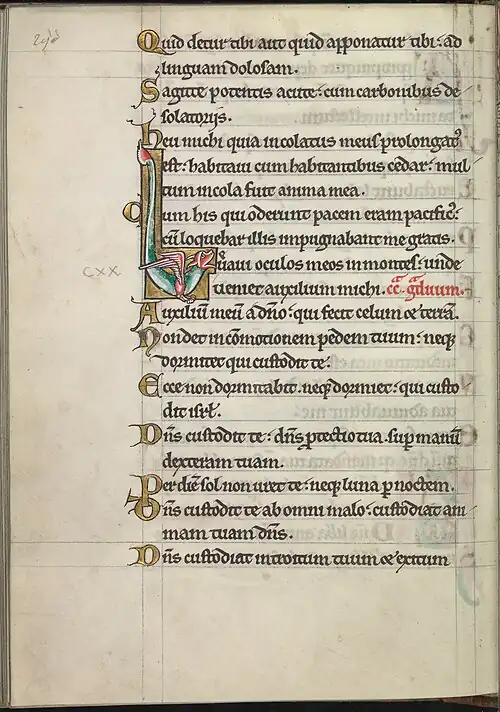 Quid detur tibi aut quid apponatur tibi: ad
linguam dolosam.
Sagitte potentis acute: cum carbonibus de
solatorijs.
Heu michi quia incolatus meus prolongatꝰ
est: habitaui cum habitantibus cedar: mul
tum incola fuit anima mea.
Cum his qui oderunt pacem eram pacificꝰ:
cū loquebar illis impugnabant me gratis.
Leuaui oculos meos in montes: unde
CXX
ueniet auxilium michi.
Auxiliū meū a dño: qui fecit celum et terrā.
Non det in cōmotionem pedem tuum: neqꝫ
dormitet qui custodit te.
Ecce non dormitabit neqꝫ dormiet: qui custo
dit isrl.
Dñs custodit te: dñs ꝓtectio tua. suꝑ manū
dexteram tuam.
Per diē sol non uret te: neqꝫ luna ꝑ noctem.
Dñs custodit te ab omni malo: custodiat ani
mam tuam dñs.
Dñs custodiat introitum tuum et exitum